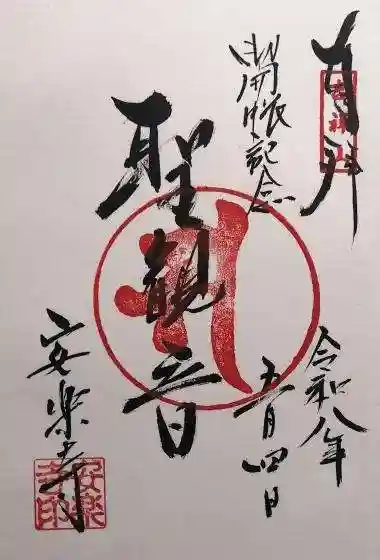 百拝
出開帳記念
令和八年
五月四日
聖観音
安楽寺
安楽寺印